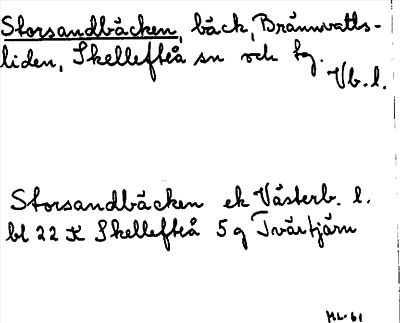 Storsandbäcken, bäck, Brännvatts-
liden, Skellefteå sn och tg.
Vb. l.
Storsandbäcken ek Västerb. l.
bl 22 K Skellefteå 5 g Tvärtjärn
HL-61